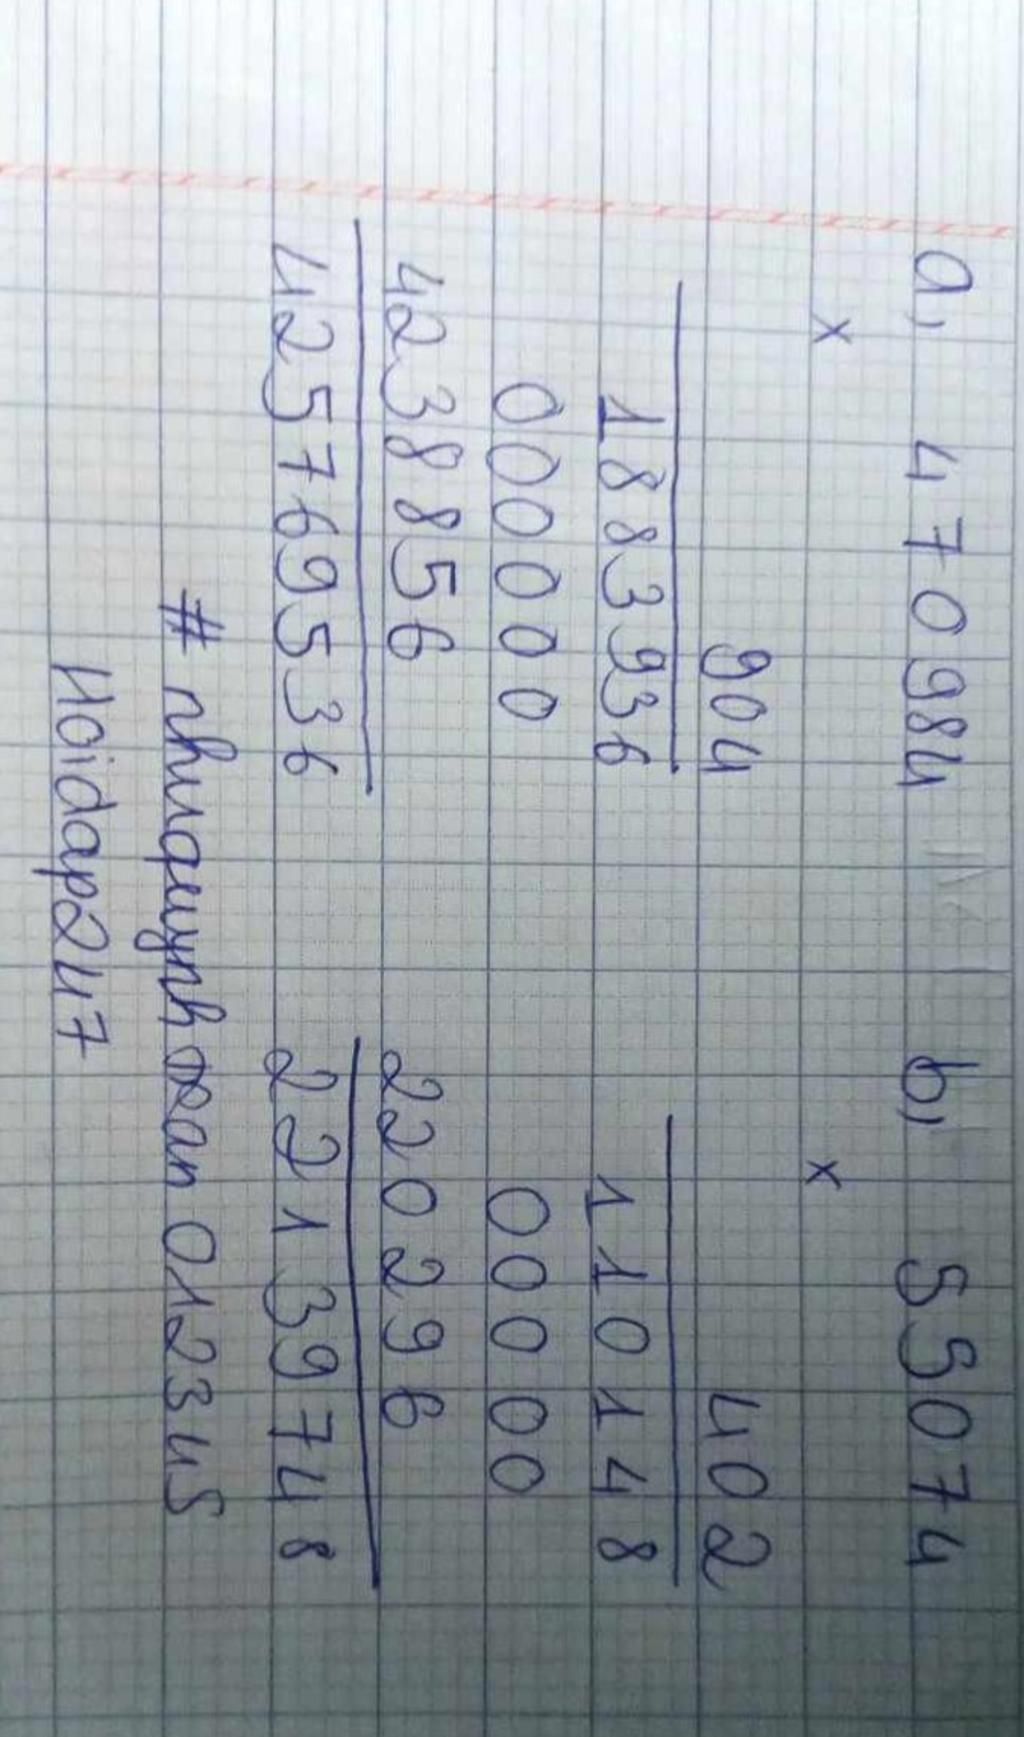 a, 470984
x
904
1883936
000000
4238856
425769536
b, 55074
x
402
110148
00000
220296
22139748
# nhuquynhtran012345
Hoidap247